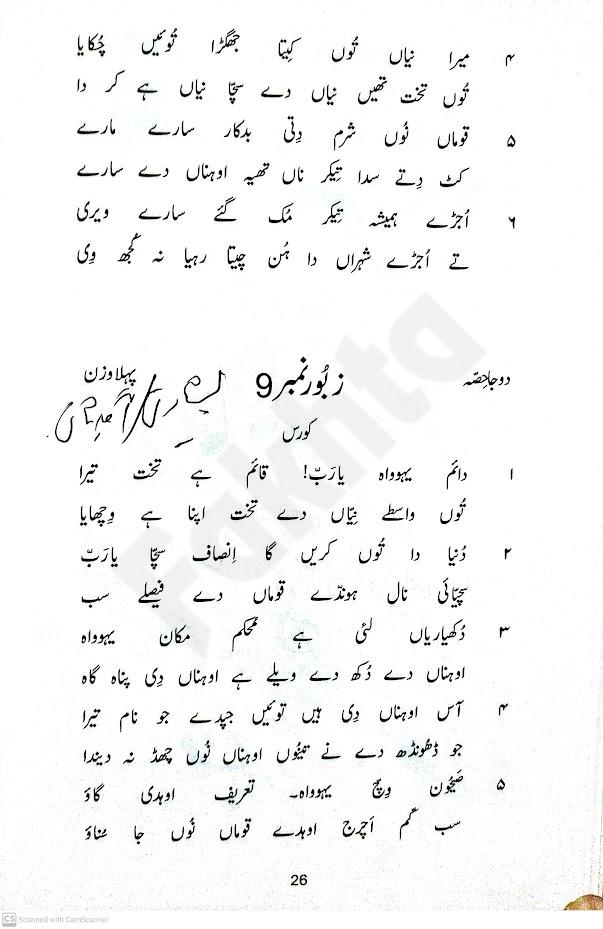 ۴ میرا نیاں تُوں کِیتا جھگڑا تُوئیں چُکایا
تُوں تخت تھیں نیاں دے سچّا نیاں ہے کر دا
۵ قوماں نُوں شرم دِتی بدکار سارے مارے
کٹ دِتے سدا تِیکر ناں تھیہ اوہناں دے سارے
۶ اُجڑے ہمیشہ تِیکر مُک گئے سارے ویری
تے اُجڑے شہراں دا ہُن چیتا رہیا نہ کُجھ وِی
دوجا حِصّہ
زبُور نمبر 9
پہلا وزن
کورس
۱ دائم یہوواہ یارَبّ! قائم ہے تخت تیرا
تُوں واسطے نِیّاں دے تخت اپنا ہے وِچھایا
۲ دُنیا دا تُوں کریں گا اِنصاف سچّا یارَبّ
سچیّائی نال ہونڈے قوماں دے فیصلے سب
۳ دُکھیاریاں لئی ہے مُحکم مکان یہوواہ
اوہناں دے دُکھ دے ویلے ہے اوہناں دِی پناہ گاہ
۴ آس اوہناں دِی ہیں توئیں جپدے جو نام تیرا
جو ڈھُونڈھ دے نے تینُوں اوہناں نُوں چھڈ نہ دیندا
۵ صَیحُون وِچ یہوواہ۔ تعریف اوہدی گاؤ
سب کم اَچرج اوہدے قوماں نُوں جا سُناؤ
26
Fakhta
CS Scanned with CamScanner